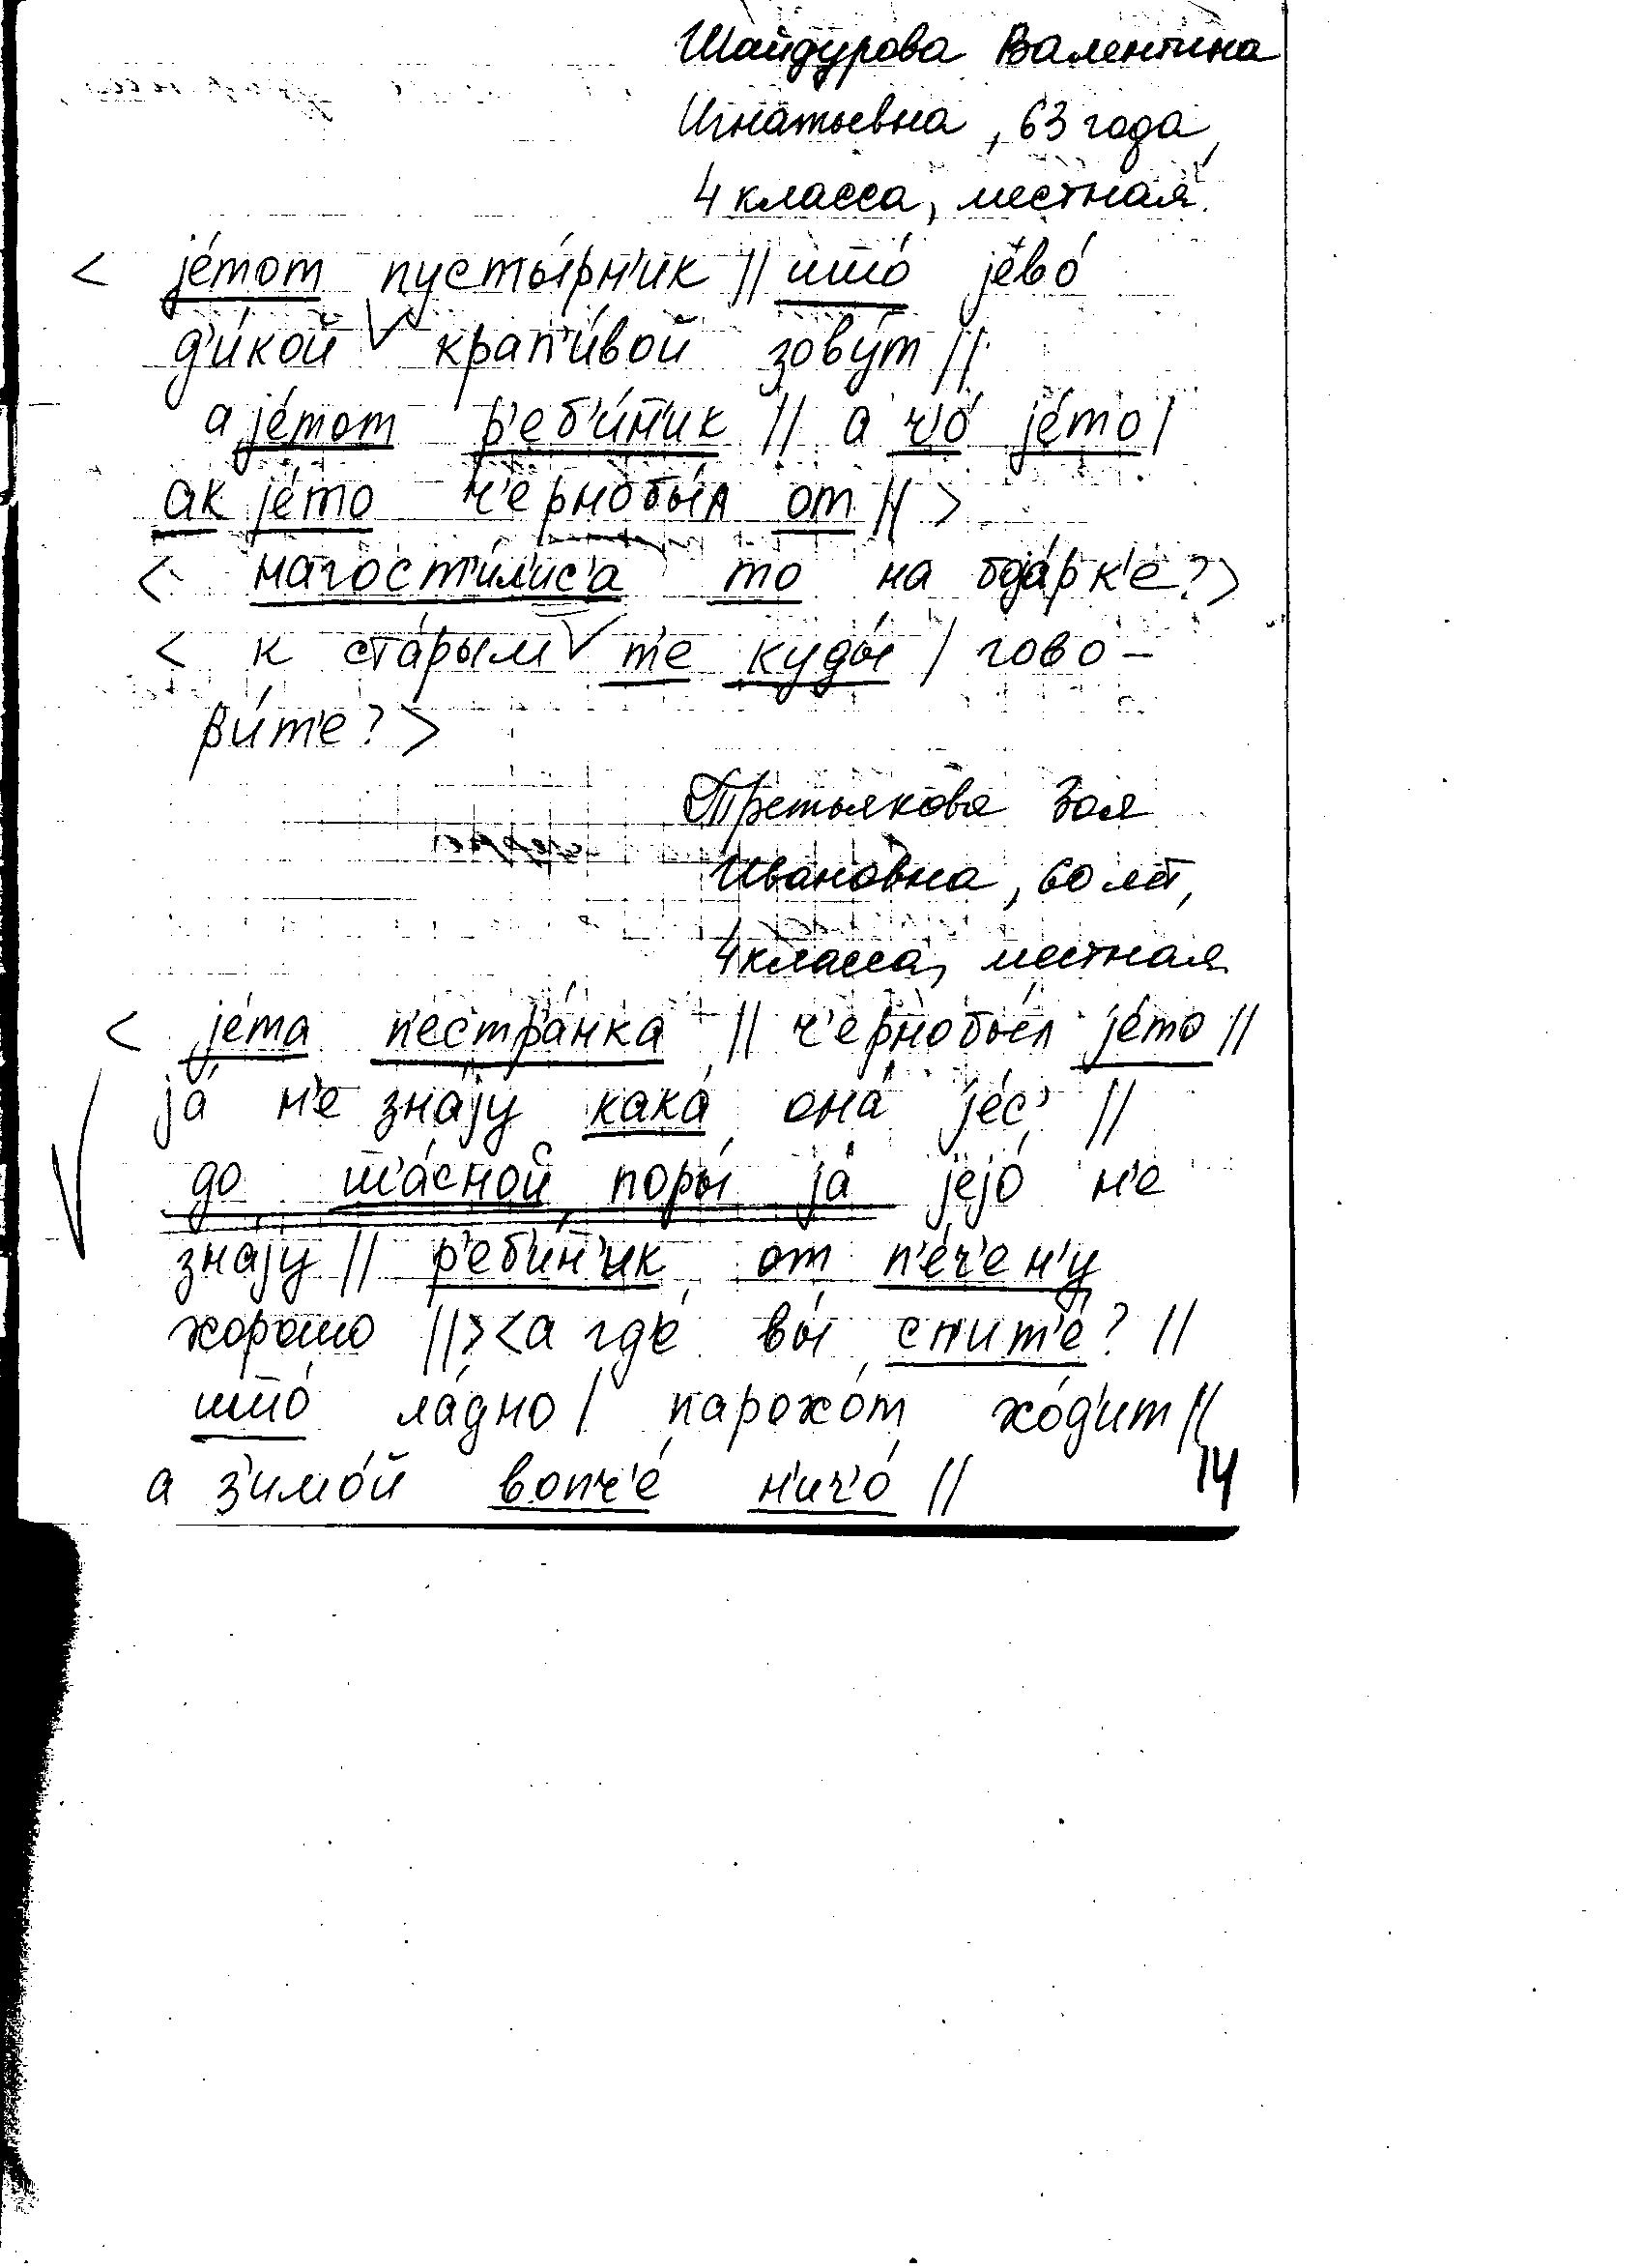 Шайдурова Валентина
Игнатьевна, 63 года,
4 класса, местная.
< jе́тот пусты́рн'ик || што́ jево́
д'и́кой крап'и́вой зову́т ||
а jе́тот р'еб'и́н'ик || а ч'о́ jе́то |
ак jе́то ч'ернобы́л от || >
< нагост'и́л'ис'а то на бда́рк'е? >
< к ста́рым т'е куды́ | гово-
ри́т'е? >
Третьякова Зоя
Ивановна, 60 лет,
4 класса, местная
< jе́та п'естра́нка || ч'ернобы́л jе́то ||
jа́ н'е зна́jу кака́ она́ jе́с' ||
до ш'а́сной поры́ jа́ jejо́ н'е
зна́jу || р'еб'и́н'ик от п'е́ч'ен'у
хорошо́ || > < а гд'е́ вы́ сп'ит'е́? ||
што́ ла́дно | парохо́т хо́д'ит ||
а з'имо́й вопч'е́ н'ич'о́ ||
14